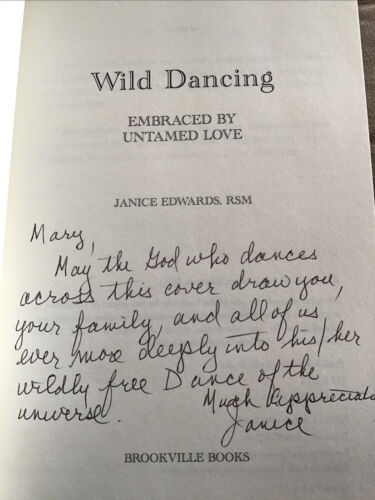 Wild Dancing
EMBRACED BY
UNTAMED LOVE
JANICE EDWARDS, RSM
Mary,
May the God who dances
across this cover draw you,
your family, and all of us
ever more deeply into his/her
wildly free Dance of the
universe.
Much Appreciate
Janice
BROOKVILLE BOOKS